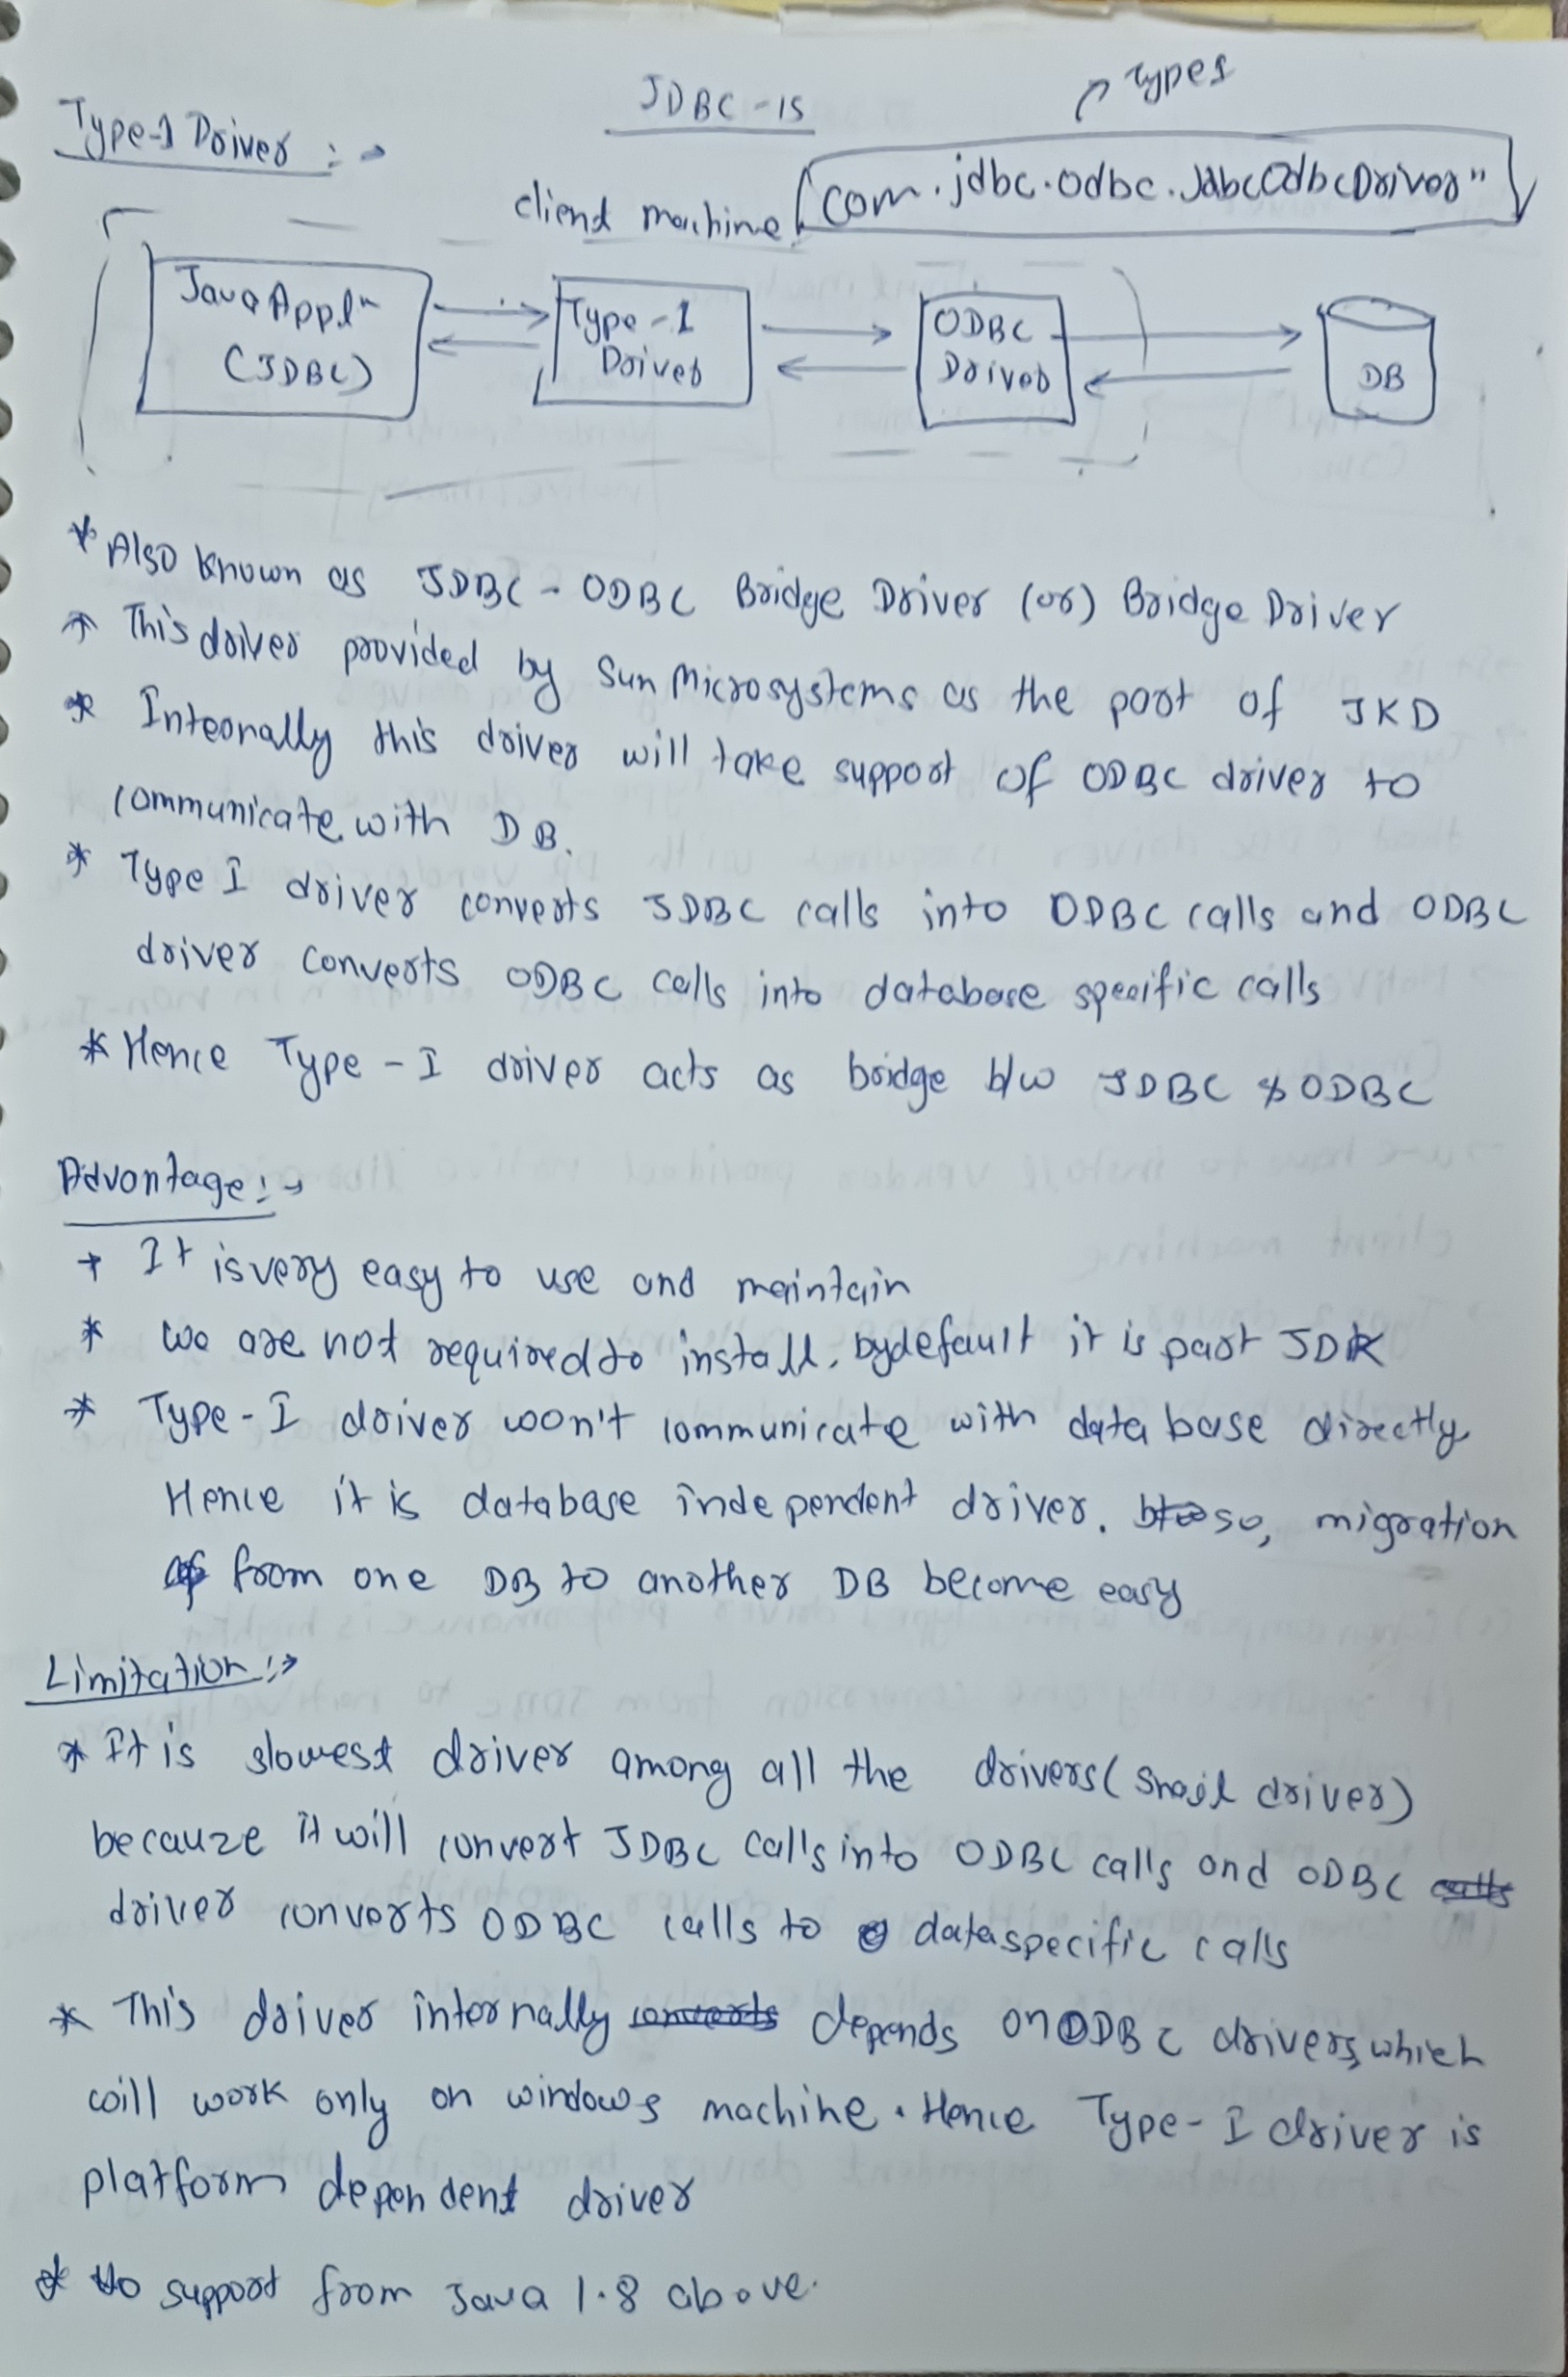 Types
JDBC-15
Type-1 Driver :->
client machine
com.jdbc.odbc.JdbcOdbcDriver"
Java Appln
(JDBC)
Type-1
Driver
ODBC
Driver
DB
* Also known as JDBC-ODBC Bridge Driver (or) Bridge Driver
* This driver provided by Sun Microsystems as the part of JKD
* Internally this driver will take support of ODBC driver to
communicate with DB.
* Type I driver converts JDBC calls into ODBC calls and ODBC
driver converts ODBC calls into database specific calls
* Hence Type-I driver acts as bridge b/w JDBC & ODBC
Advantage:->
+ It is very easy to use and maintain
* we are not required to install, bydefault it is part JDK
* Type-I driver won't communicate with data base directly
Hence it is database independent driver. so, migration
from one DB to another DB become easy
Limitation:->
* It is slowest driver among all the drivers (snail driver)
becauze it will convert JDBC calls into ODBC calls and ODBC calls
driver converts ODBC calls to dataspecific calls
* This driver internally converts depends on ODBC drivers, which
will work only on windows machine. Hence Type-I driver is
platform dependent driver
* No support from Java 1.8 above.